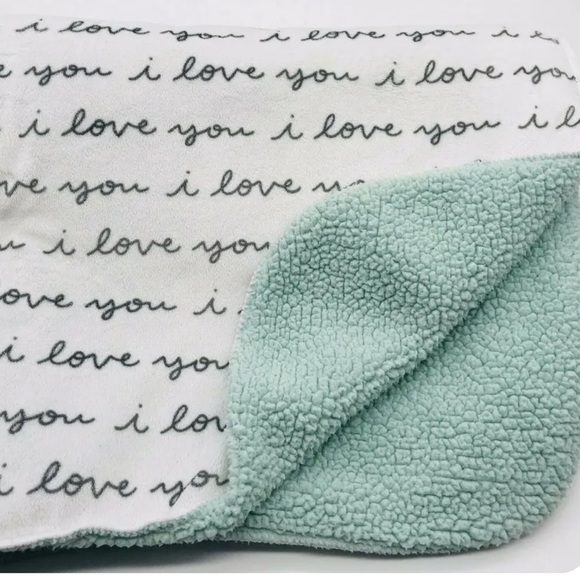 i love you i love you i
you i love you i love you
i love you i love you i
you i love
i love you
love you i
i love you
you i
i love you